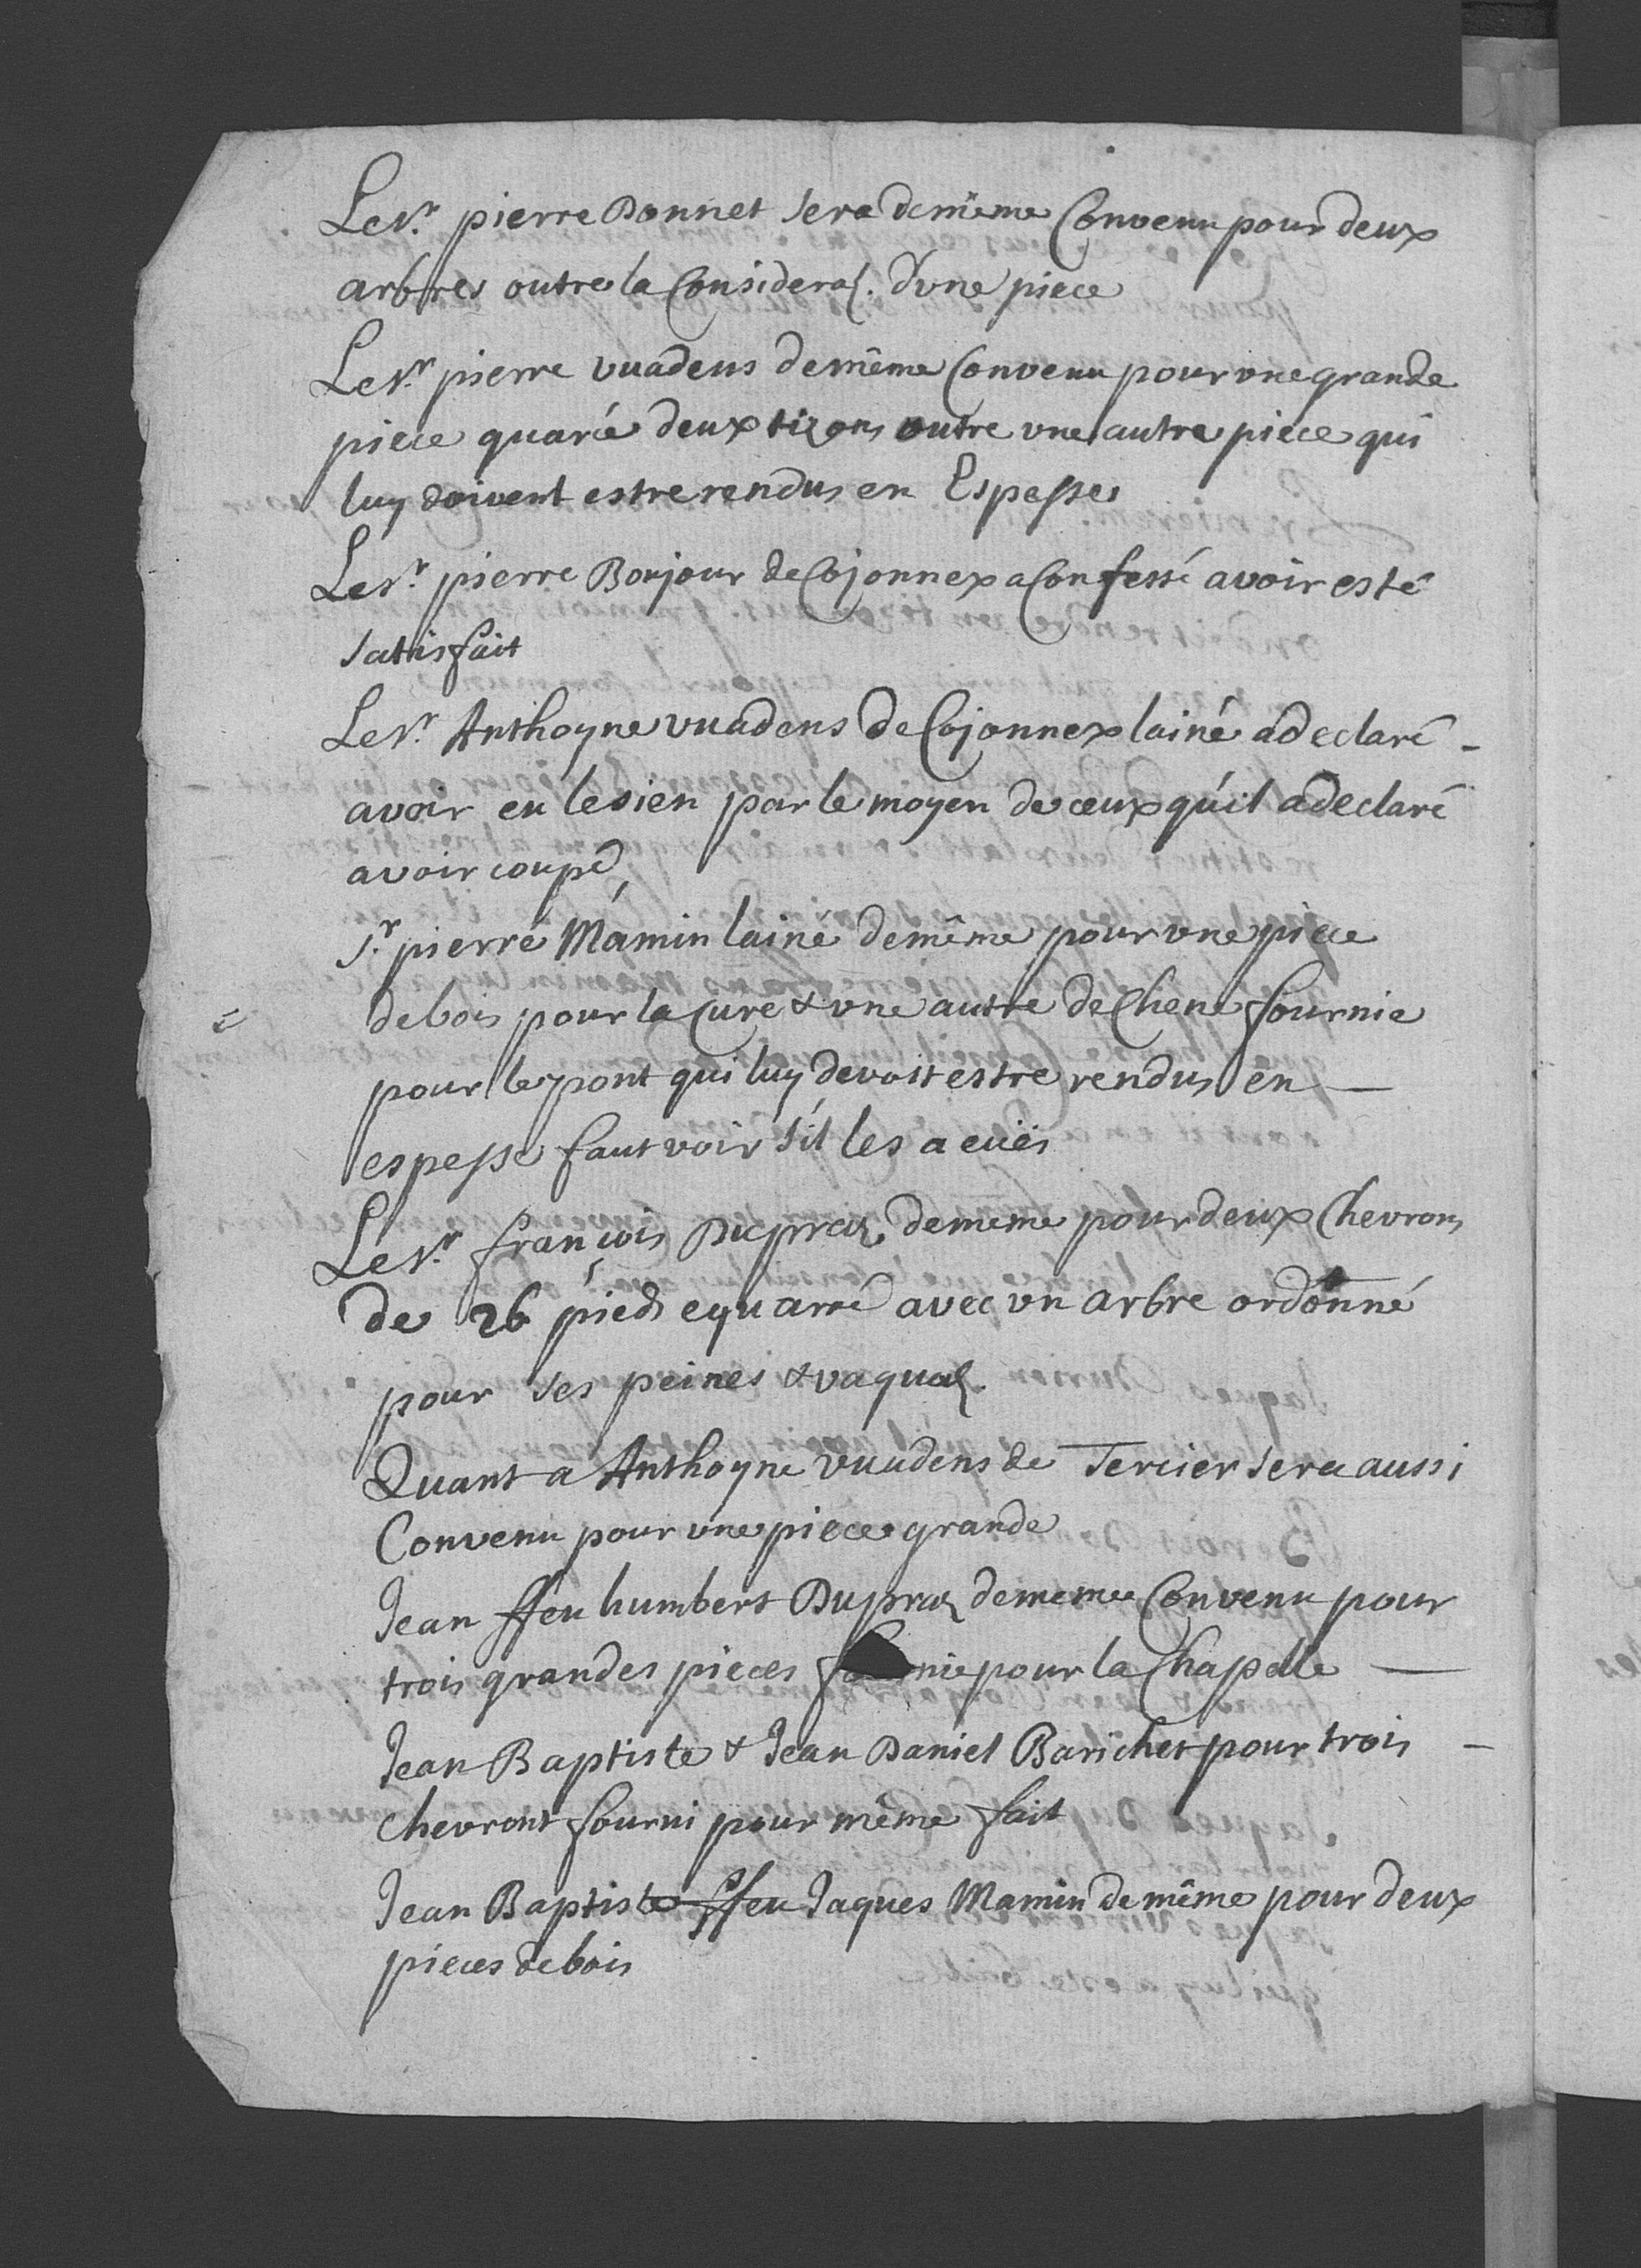 Le Sr. pierre Donnet sera demême Convenu pour deux
arbres outre la Considera͠o. d'vne piece
Le Sr. pierre vuadens demême Convenu pour vne grande
piece quarée deux tizons outre vne autre piece qui
luy doivent estre rendus en Espesses
Le Sr. pierre Bonjour de Cojonnex a Confessé avoir esté
satisfait
Le Sr. Anthoyne vuadens de Cojonnex lainé a declaré -
avoir eu le sien par le moyen de ceux qu'il a declaré
avoir coupé,
Sr. pierre Mamin lainé demême pour vne piece
de bois pour la Cure & vne autre de Chene fournie
pour le pont qui luy devoit estre rendus en —
espesse faut voir s'il les a euës
Le Sr. françois Dupraz demême pour deux Chevrons
de 26 pieds equarré avec vn arbre ordonné
pour ses peines & vaqua͠o.
Quant a Anthoyne Vuadens de Tercier sera aussi
Convenu pour vne piece grande
Jean ffeu humbert Dupraz demême Convenu pour
trois grandes pieces pour la Chapelle —
Jean Baptiste & Jean Daniel Barichet pour trois -
chevront fourni pour même fait
Jean Baptiste ffeu Jaques Mamin de même pour deux
pieces de bois